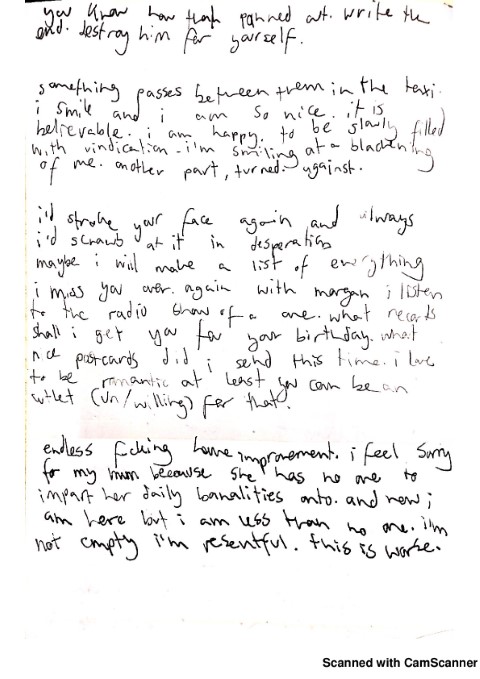 you know how that panned out. write the
end. destroy him for yourself.
something passes between them in the taxi.
i smile and i am so nice. it is
believable. i am happy. to be slowly filled
with vindication. i'm smiling at a blackening
of me. another part, turned. against.
i'd stroke your face again and always
i'd scrawb at it in desperation
maybe i will make a list of everything
i miss you over. again with morgan i listen
to the radio show of a one. what records
shall i get you for your birthday. what
nice postcards did i send this time. i love
to be romantic at least you can be an
outlet (un/willing) for that.
endless fcking home improvement. i feel sorry
for my mum because she has no one to
impart her daily banalities onto. and now i
am here but i am less than no one. i'm
not empty i'm resentful. this is worse.
Scanned with CamScanner